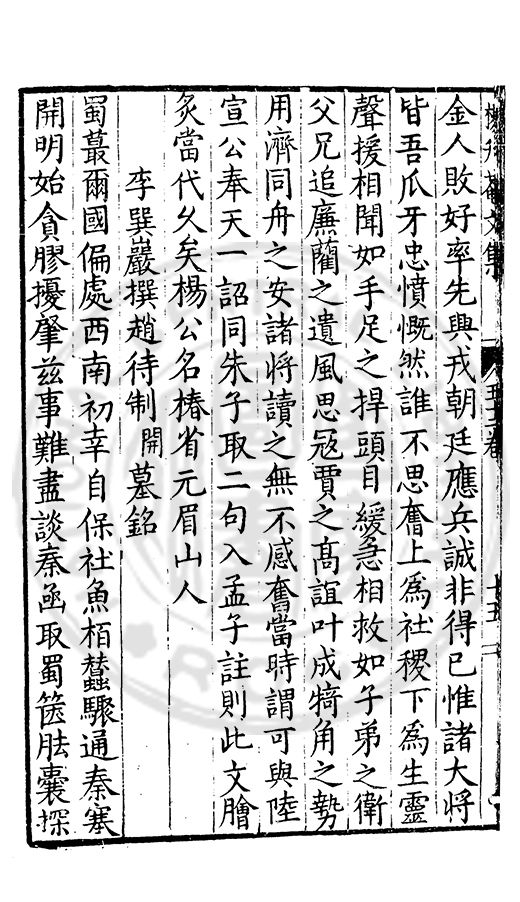 金人敗好率先興戎朝廷應兵誠非得已惟諸大將
皆吾爪牙忠憤慨然誰不思奮上爲社稷下爲生靈
聲援相聞如手足之捍頭目緩急相救如子弟之衛
父兄追廉藺之遺風思冦賈之高誼叶成犄角之勢
用濟同舟之安諸將讀之無不感奮當時謂可與陸
宣公奉天一詔同朱子取二句入孟子註則此文膾
炙當代久矣楊公名椿省元眉山人
李巽巖撰趙待制開墓銘
蜀蕞爾國偏處西南初幸自保社魚栢蠶驟通秦塞
開明始貪膠擾肇兹事難盡談秦凾取蜀篋胠囊探